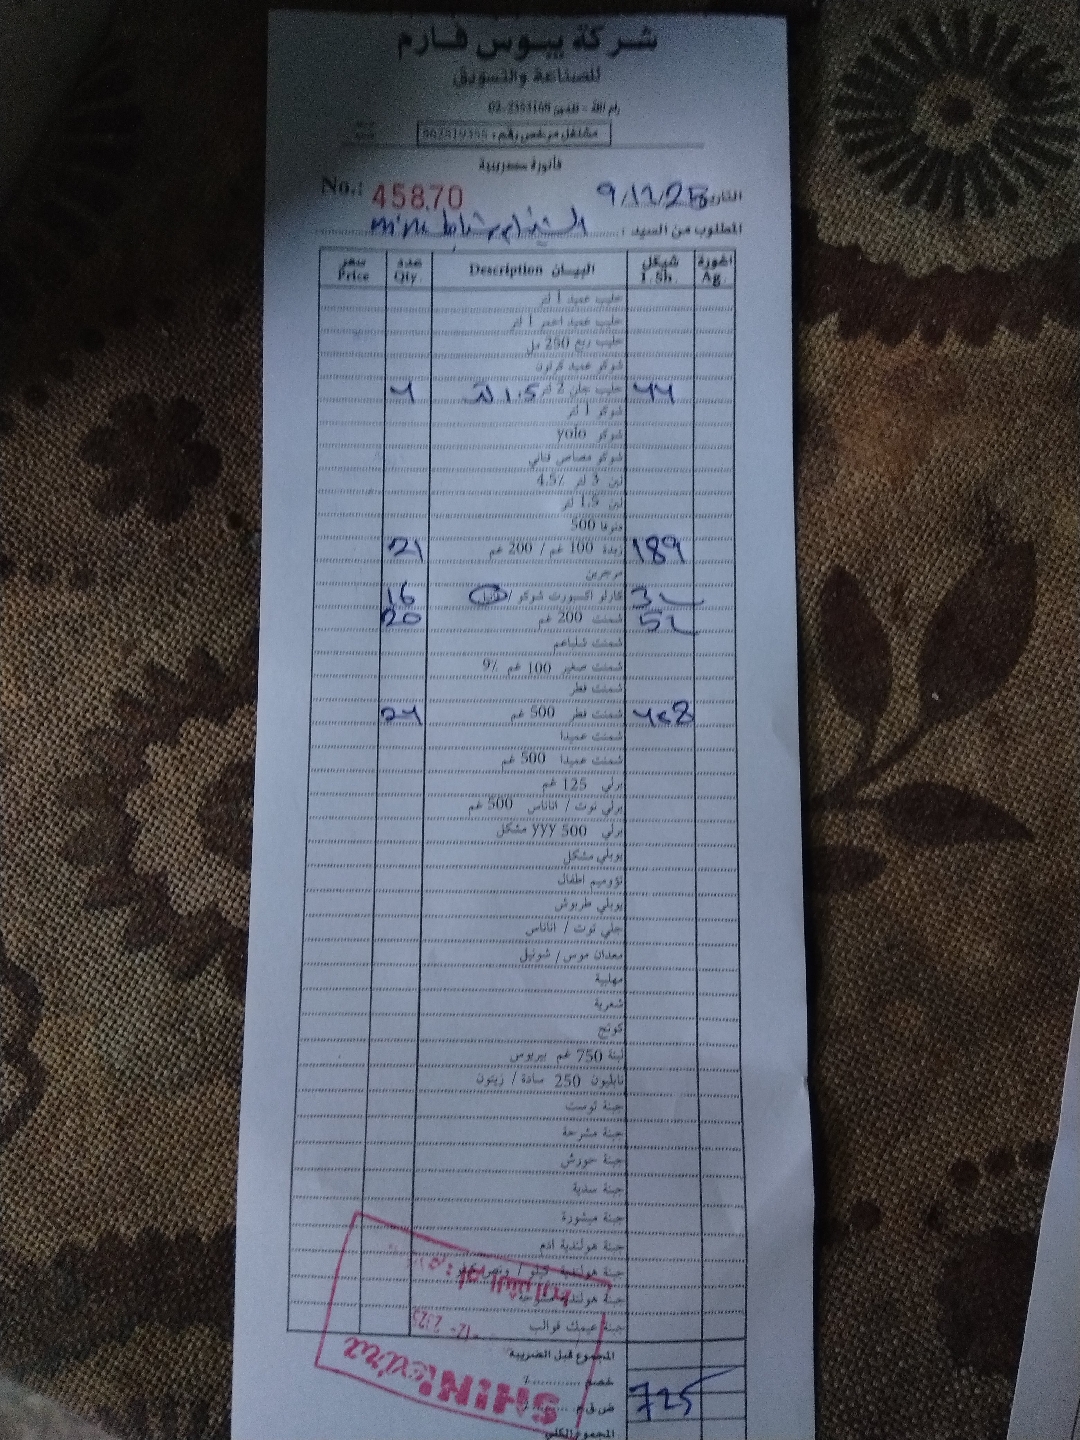 شركة بيوس فارم
للصناعة والتسويق
فاتورة ضريبية
No.: 45870
التاريخ 9/11/25
المطلوب من السيد :
سعر Price عدد Qty. البيــان Description شيكل I. Sh. اغورة Ag.
حليب عميد 1 لتر
حليب عميد احمر 1 لتر
حليب ربع 250 مل
شوكو عميد كرتون
حليب جلن 2 لتر 1.5
شوكو 1 لتر
شوكو yolo
شوكو مصاص قناني
لبن 3 لتر 4.5%
لبن 1.5 لتر
500
21 زبدة 100 غم / 200 غم 189
مرجرين
16 كارلو اكسبورت شوكو /
20 شمنت 200 غم
شمنت شلباعم
شمنت صغير 100 غم 9%
شمنت فطر
24 شمنت فطر 500 غم
شمنت عميدا
شمنت عميدا 500 غم
برلي 125 غم
برلي توت / اناناس 500 غم
برلي yyy 500 مشكل
يوبلي مشكل
اطفال
يوبلي طربوش
جلي توت / اناناس
معدان موس / شونيل
مهلبية
شعرية
كوتج
لبنة 750 غم بيريوس
نابليون 250 سادة / زيتون
جبنة توست
جبنة مشرحة
جبنة حورش
جبنة
جبنة مبشورة
جبنة هولندية ادم
جبنة هولندية
جبنة هولندية
جبنة عيمك قوالب
المجموع قبل الضريبة
خصم
ض.ق.م 725
المجموع الكلي
SHINI